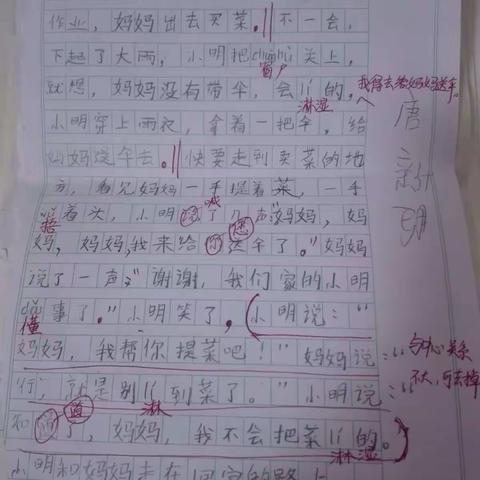 作业，妈妈出去买菜。‖不一会，
下起了大雨，小明把chuānghù关上，
窗户
就想，妈妈没有带伞，会lí的，
淋湿
我得去给妈妈送伞。
小明穿上雨衣，拿着一把伞，给
妈妈送伞去。‖快要走到买菜的地
方，看见妈妈一手提着菜，一手
捂着头，小明喊了几声：妈妈，妈
妈，妈妈，我来给你送伞了。”妈妈
您
说了一声：“谢谢，我们家的小明
dǒng事了。”小明笑了，小明说：“
懂
妈妈，我帮你提菜吧！”妈妈说：“
行，就是别lí到菜了。”小明说：“
淋
知道了，妈妈，我不会把菜lí的。
道
淋湿
小明和妈妈走在回家的路上
与中心关系
不大，可去掉
唐